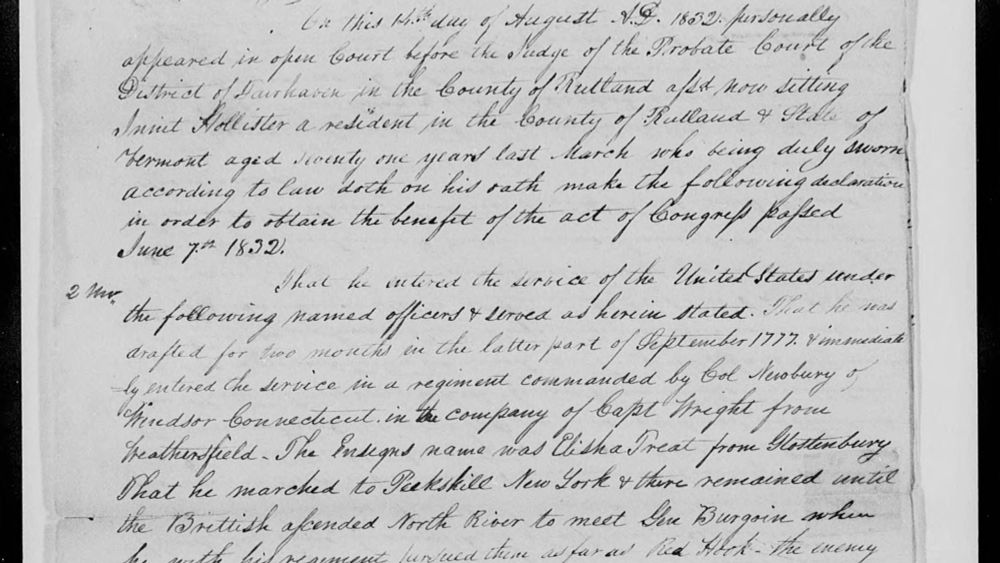 On this 14th day of August A.D. 1832. personally
appeared in open Court before the Judge of the Probate Court of the
District of Fairhaven in the County of Rutland afsd now sitting
Innit Hollister a resident in the County of Rutland & State of
Vermont aged seventy one years last March who being duly sworn
according to law doth on his oath make the following declaration
in order to obtain the benefit of the act of Congress passed
June 7th 1832.
That he entered the service of the United States under
2 Mo.
the following named officers & served as herein stated. That he was
drafted for two months in the latter part of September 1777. & immediate
ly entered the service in a regiment commanded by Col Newbury of
Windsor Connecticut. in the company of Capt Wright from
Weathersfield - The Ensigns name was Elisha Treat from Glostenbury
That he marched to Peekskill New York & there remained until
the Brittish ascended North River to meet Gen Burgoin when
he with his regiment pursued them as far as Red Hook - the enemy